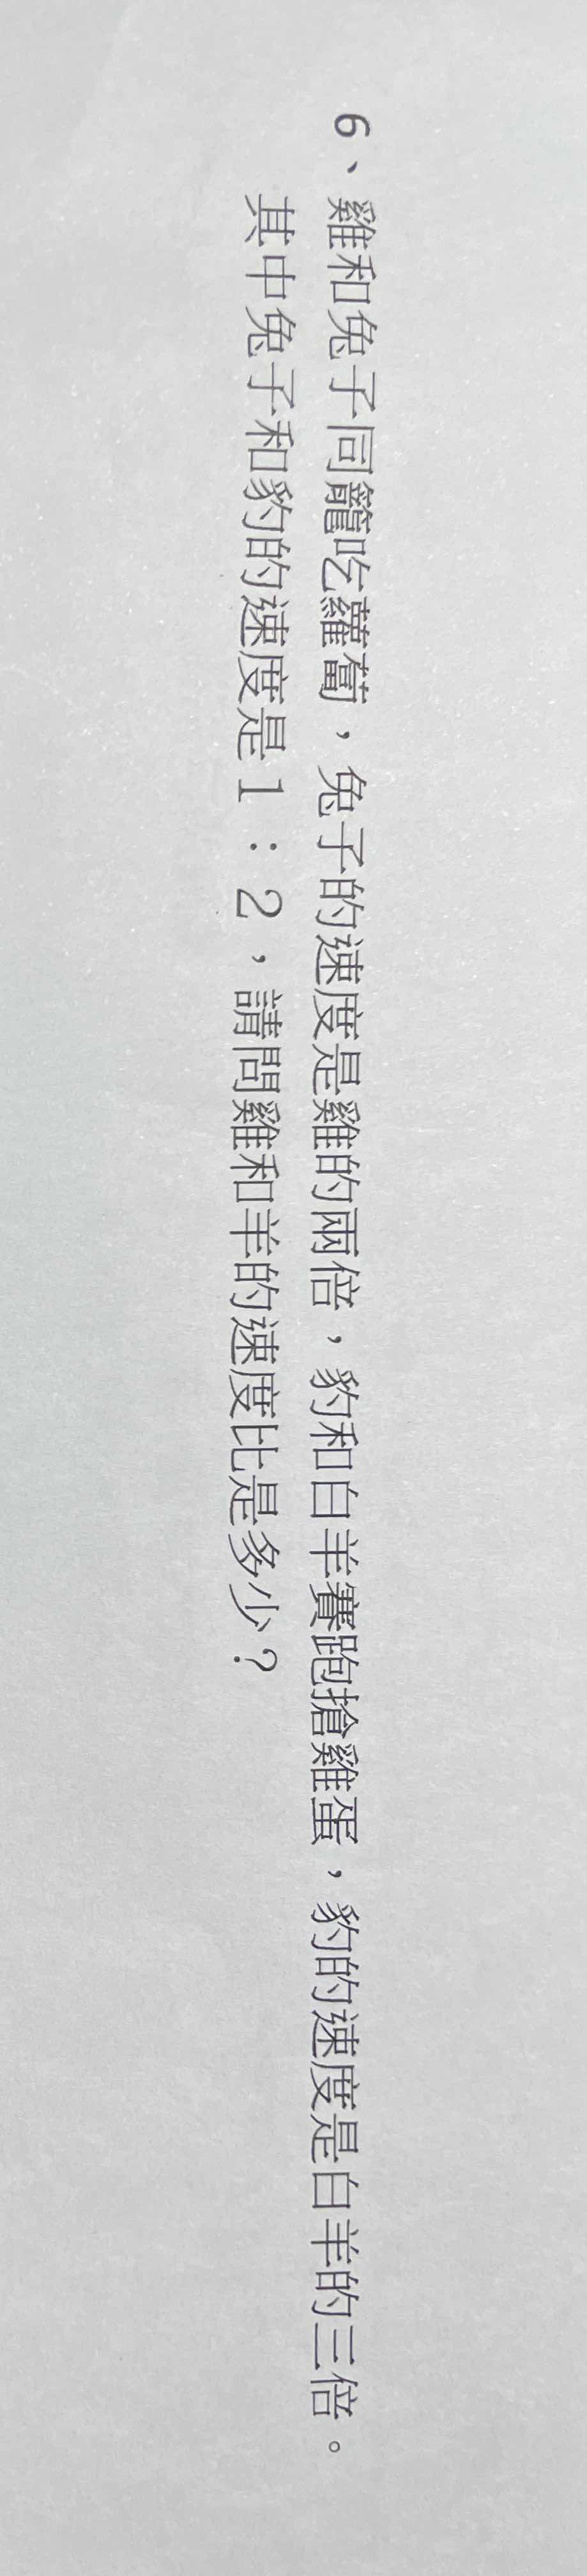 6、雞和兔子同籠吃蘿蔔，兔子的速度是雞的兩倍，豹和白羊賽跑搶雞蛋，豹的速度是白羊的三倍。
其中兔子和豹的速度是1：2，請問雞和羊的速度比是多少?